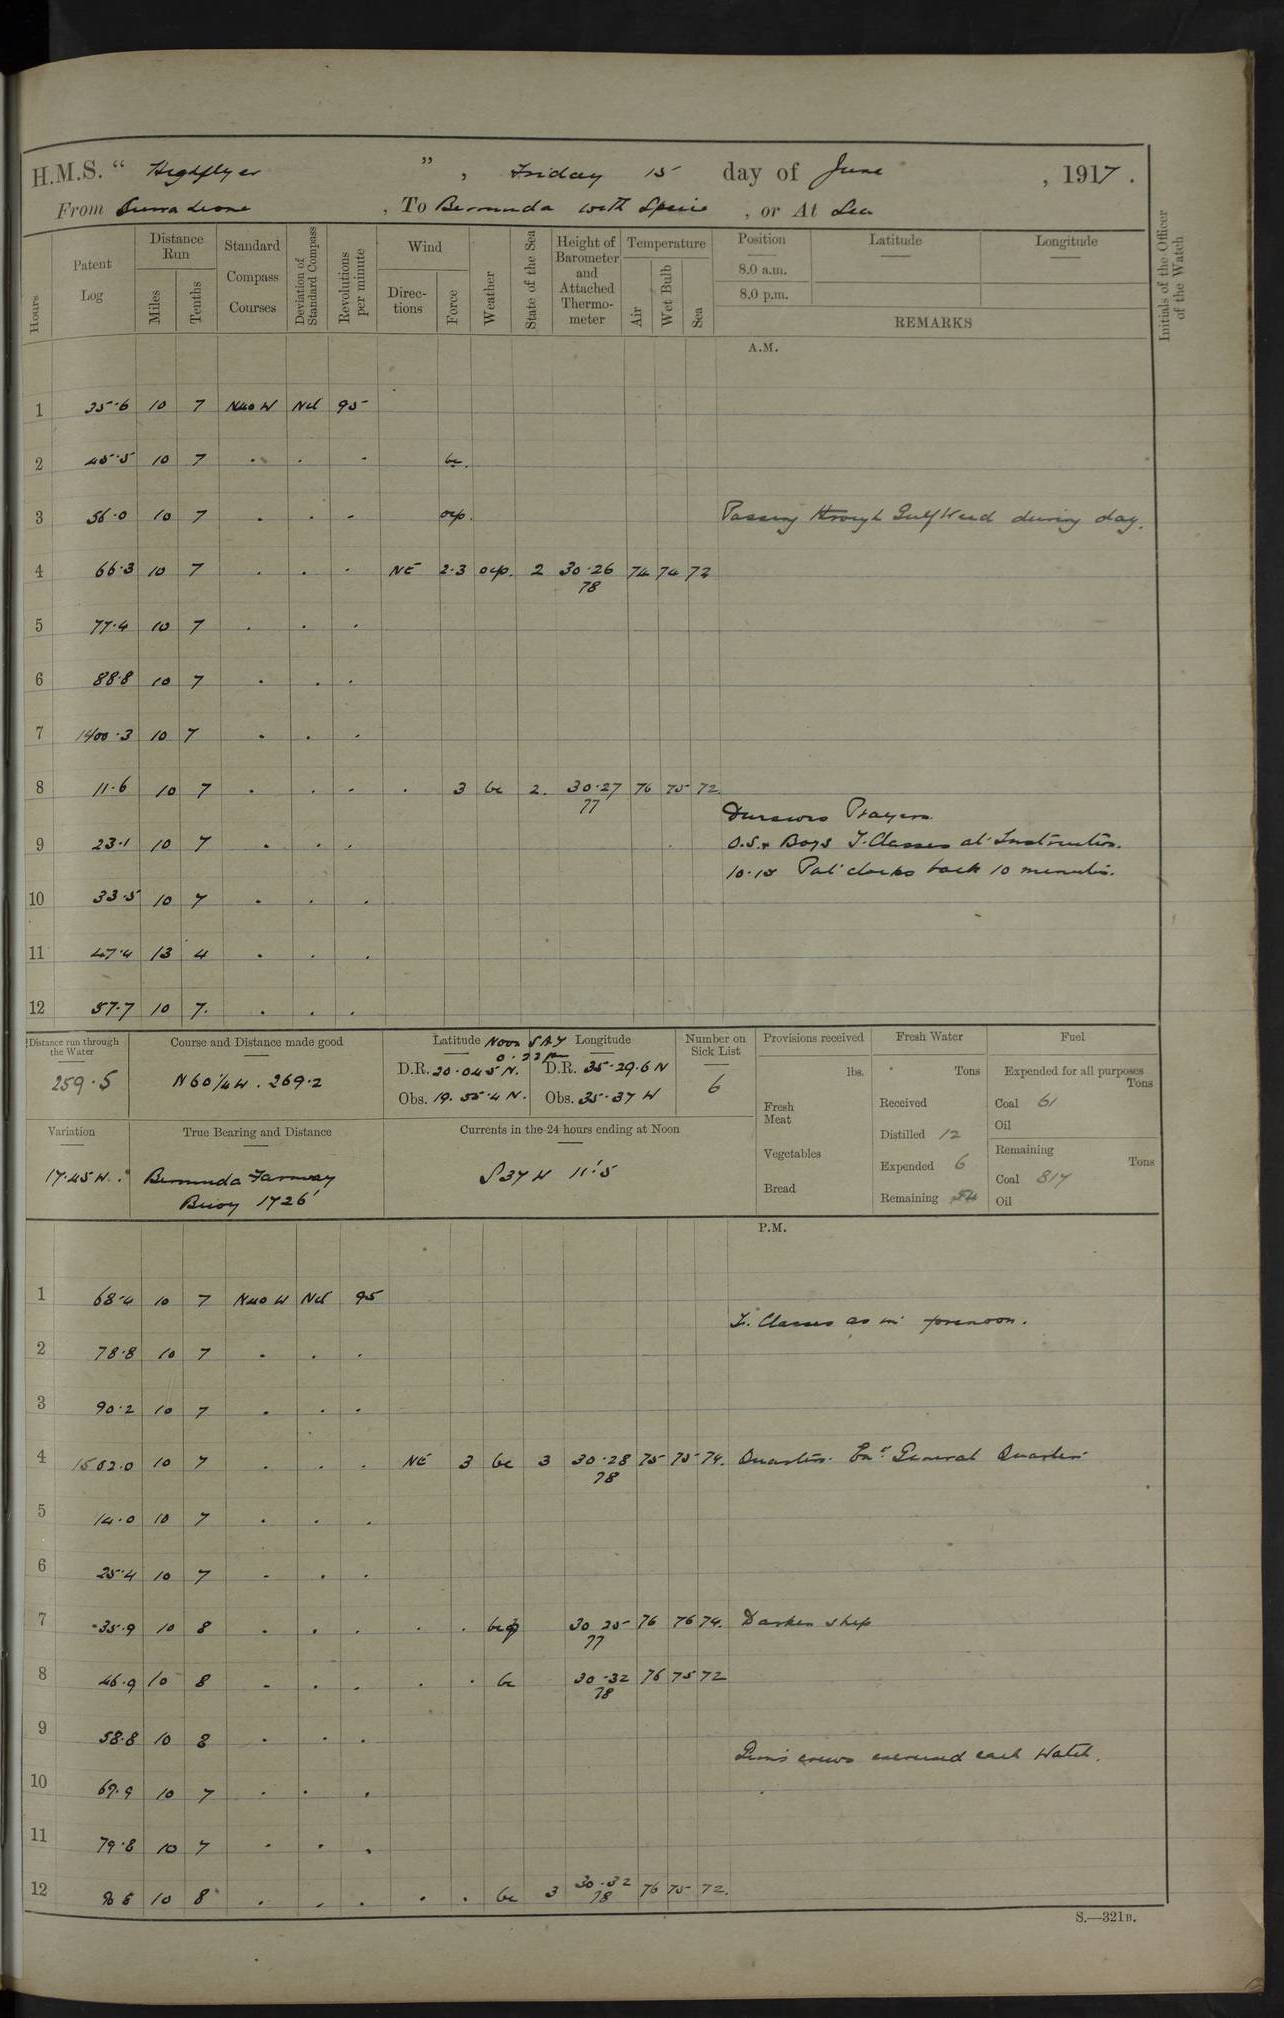 H.M.S. “ Highflyer ” , Friday 15 day of June , 1917 .
From Sierra Leone , To Bermuda with , or At Sea
Hours
Patent Log
Distance Run
Miles
Tenths
Standard Compass Courses
Deviation of Standard Compass
Revolutions per minute
Wind
Directions
Force
Weather
State of the Sea
Height of Barometer and Attached Thermometer
Temperature
Air
Wet Bulb
Sea
Position
8.0 a.m.
8.0 p.m.
Latitude
Longitude
REMARKS
Initials of the Officer of the Watch
A.M.
1 35.6 10 7 N40W Nil 95
2 45.5 10 7 . . . bc.
3 56.0 10 7 . . . ocp. Passing through Gulf Weed during day.
4 66.3 10 7 . . . NE 2.3 ocp. 2 30.26 74 74 72
78
5 77.4 10 7 . . .
6 88.8 10 7 . . .
7 1400.3 10 7 . . .
8 11.6 10 7 . . . . 3 bc 2. 30.27 76 75 72
77
Divisions Prayers.
9 23.1 10 7 . . . O.S. & Boys T. Classes at Instruction.
10.15 Put clocks back 10 minutes.
10 33.5 10 7 . . .
11 47.4 13 4 . . .
12 57.7 10 7. . . .
Distance run through the Water
259.5
Course and Distance made good
N60¼W . 269.2
Latitude Noon Longitude
D.R. 20.04.5 N. D.R. 35.29.6
Obs. 19.55.4 N. Obs. 35.37 W
Number on Sick List
6
Provisions received
lbs.
Fresh Meat
Vegetables
Bread
Fresh Water
Tons
Received
Distilled 12
Expended 6
Remaining
Fuel
Expended for all purposes
Tons
Coal 61
Oil
Remaining
Tons
Coal 817
Oil
Variation
17.45 W.
True Bearing and Distance
Bermuda Fairway
Buoy 1726'
Currents in the 24 hours ending at Noon
S37W 11'.5
P.M.
1 68.4 10 7 N40W Nil 95
T. Classes as in forenoon.
2 78.8 10 7 . . .
3 90.2 10 7 . . .
4 1502.0 10 7 . . . NE 3 bc 3 30.28 75 75 74. Quarters. Ex. General Quarters
78
5 14.0 10 7 . . .
6 25.4 10 7 . . .
7 35.9 10 8 . . . . . bcp 30 25 76 76 74. Darken ship
77
8 46.9 10 8 . . . . . bc 30.32 76 75 72
78
9 58.8 10 8 . . .
Guns crews exercised each Watch.
10 69.9 10 7 . . .
11 79.8 10 7 . . .
12 10 8 . . . . . bc 3 30.32 76 75 72.
78
S.—321B.